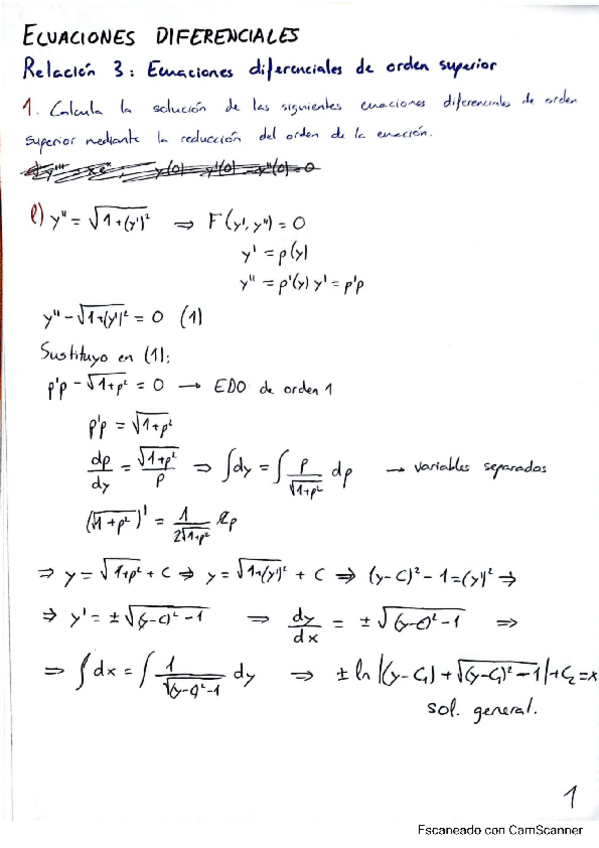 ECUACIONES DIFERENCIALES
Relación 3: Ecuaciones diferenciales de orden superior
1. Calcula la solución de las siguientes ecuaciones diferenciales de orden
superior mediante la reducción del orden de la ecuación.
e) y'' = √1+(y')² ⇒ F(y', y'') = 0
y' = p(y)
y'' = p'(y) y' = p'p
y'' - √1+(y')² = 0 (1)
Sustituyo en (1):
p'p - √1+p² = 0 → EDO de orden 1
p'p = √1+p²
dp/dy = √1+p²/p ⇒ ∫dy = ∫ p/√1+p² dp → variables separadas
(√1+p²)' = 1/2√1+p² 2p
⇒ y = √1+p² + C ⇒ y = √1+(y')² + C ⇒ (y-C)² - 1 = (y')² ⇒
⇒ y' = ±√(y-C)² - 1 ⇒ dy/dx = ±√(y-C)² - 1 ⇒
⇒ ∫dx = ∫ 1/√(y-C)² - 1 dy ⇒ ± ln |(y-C₁) + √(y-C₁)² - 1| + C₂ = x
sol. general.
1
Escaneado con CamScanner